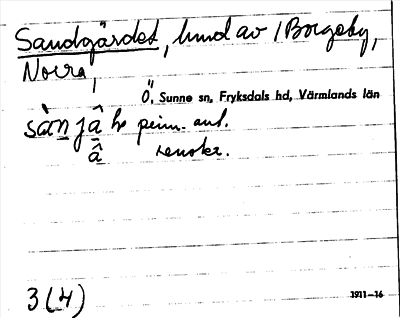 Sandgärdet, hmd av 1 Borgeby,
Norra,
Ö, Sunne sn, Fryksdals hd, Värmlands län
sàn jâ he prim. ant.
â renskr.
3 (4)
1911–16